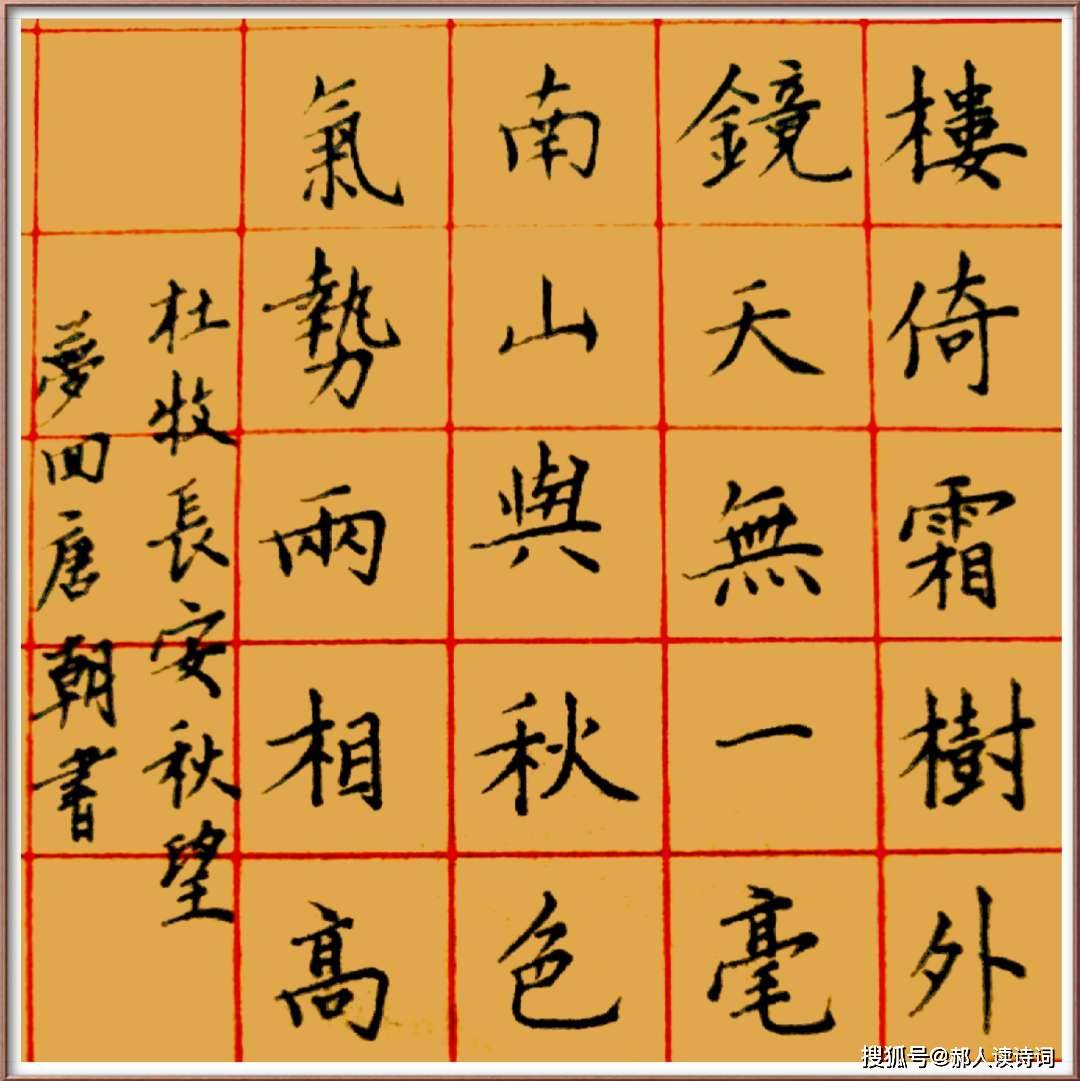 樓倚霜樹外
鏡天無一毫
南山與秋色
氣勢兩相高
杜牧長安秋望
夢回唐朝書
搜狐号@郝人读诗词